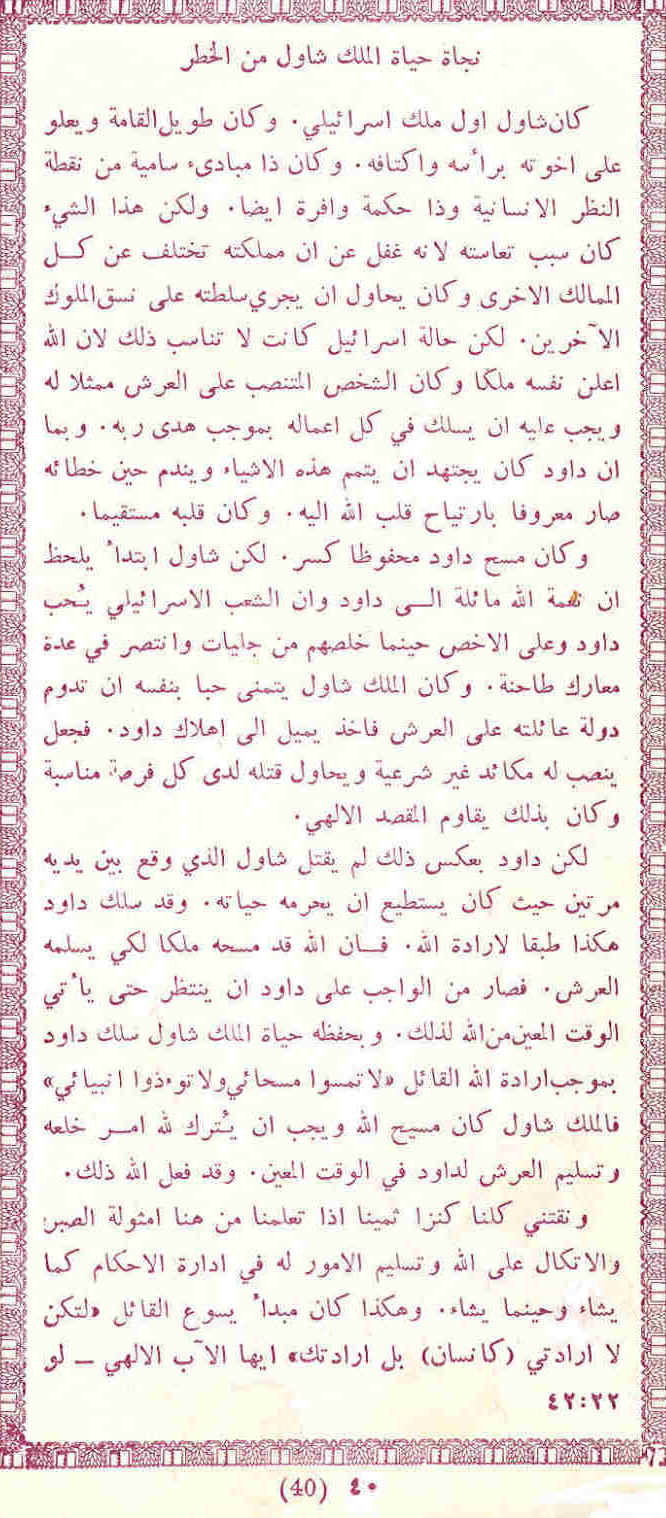 نجاة حياة الملك شاول من الخطر
كان شاول اول ملك اسرائيلي. وكان طويل القامة ويعلو
على اخوته برأسه واكتافه. وكان ذا مبادىء سامية من نقطة
النظر الانسانية وذا حكمة وافرة ايضا. ولكن هذا الشيء
كان سبب تعاسته لانه غفل عن ان مملكته تختلف عن كــل
الممالك الاخرى وكان يحاول ان يجري سلطته على نسق الملوك
الآخرين. لكن حالة اسرائيل كانت لا تناسب ذلك لان الله
اعلن نفسه ملكا وكان الشخص المتنصب على العرش ممثلا له
ويجب عليه ان يسلك في كل اعماله بموجب هدى ربه. وبما
ان داود كان يجتهد ان يتمم هذه الاشياء ويندم حين خطائه
صار معروفا بارتياح قلب الله اليه. وكان قلبه مستقيما.
وكان مسح داود محفوظا كسر. لكن شاول ابتدأ يلحظ
ان نعمة الله مائلة الــى داود وان الشعب الاسرائيلي يُحب
داود وعلى الاخص حينما خلصهم من جليات وانتصر في عدة
معارك طاحنة. وكان الملك شاول يتمنى حبا بنفسه ان تدوم
دولة عائلته على العرش فاخذ يميل الى اهلاك داود. فجعل
ينصب له مكائد غير شرعية ويحاول قتله لدى كل فرصة مناسبة
وكان بذلك يقاوم المقصد الالهي.
لكن داود بعكس ذلك لم يقتل شاول الذي وقع بين يديه
مرتين حيث كان يستطيع ان يحرمه حياته. وقد سلك داود
هكذا طبقا لارادة الله. فــان الله قد مسحه ملكا لكي يسلمه
العرش. فصار من الواجب على داود ان ينتظر حتى يأتي
الوقت المعين من الله لذلك. وبحفظه حياة الملك شاول سلك داود
بموجب ارادة الله القائل «لا تمسوا مسحائي ولا توءذوا انبيائي»
فالملك شاول كان مسيح الله ويجب ان يُترك لله امــر خلعه
وتسليم العرش لداود في الوقت المعين. وقد فعل الله ذلك.
ونقتني كلنا كنزا ثمينا اذا تعلمنا من هنا امثولة الصبر
والاتكال على الله وتسليم الامور له في ادارة الاحكام كما
يشاء وحينما يشاء. وهكذا كان مبدأ يسوع القائل «لتكن
لا ارادتي (كانسان) بل ارادتك» ايها الآب الالهي — لو
٤٢:٢٢
٤٠ (40)